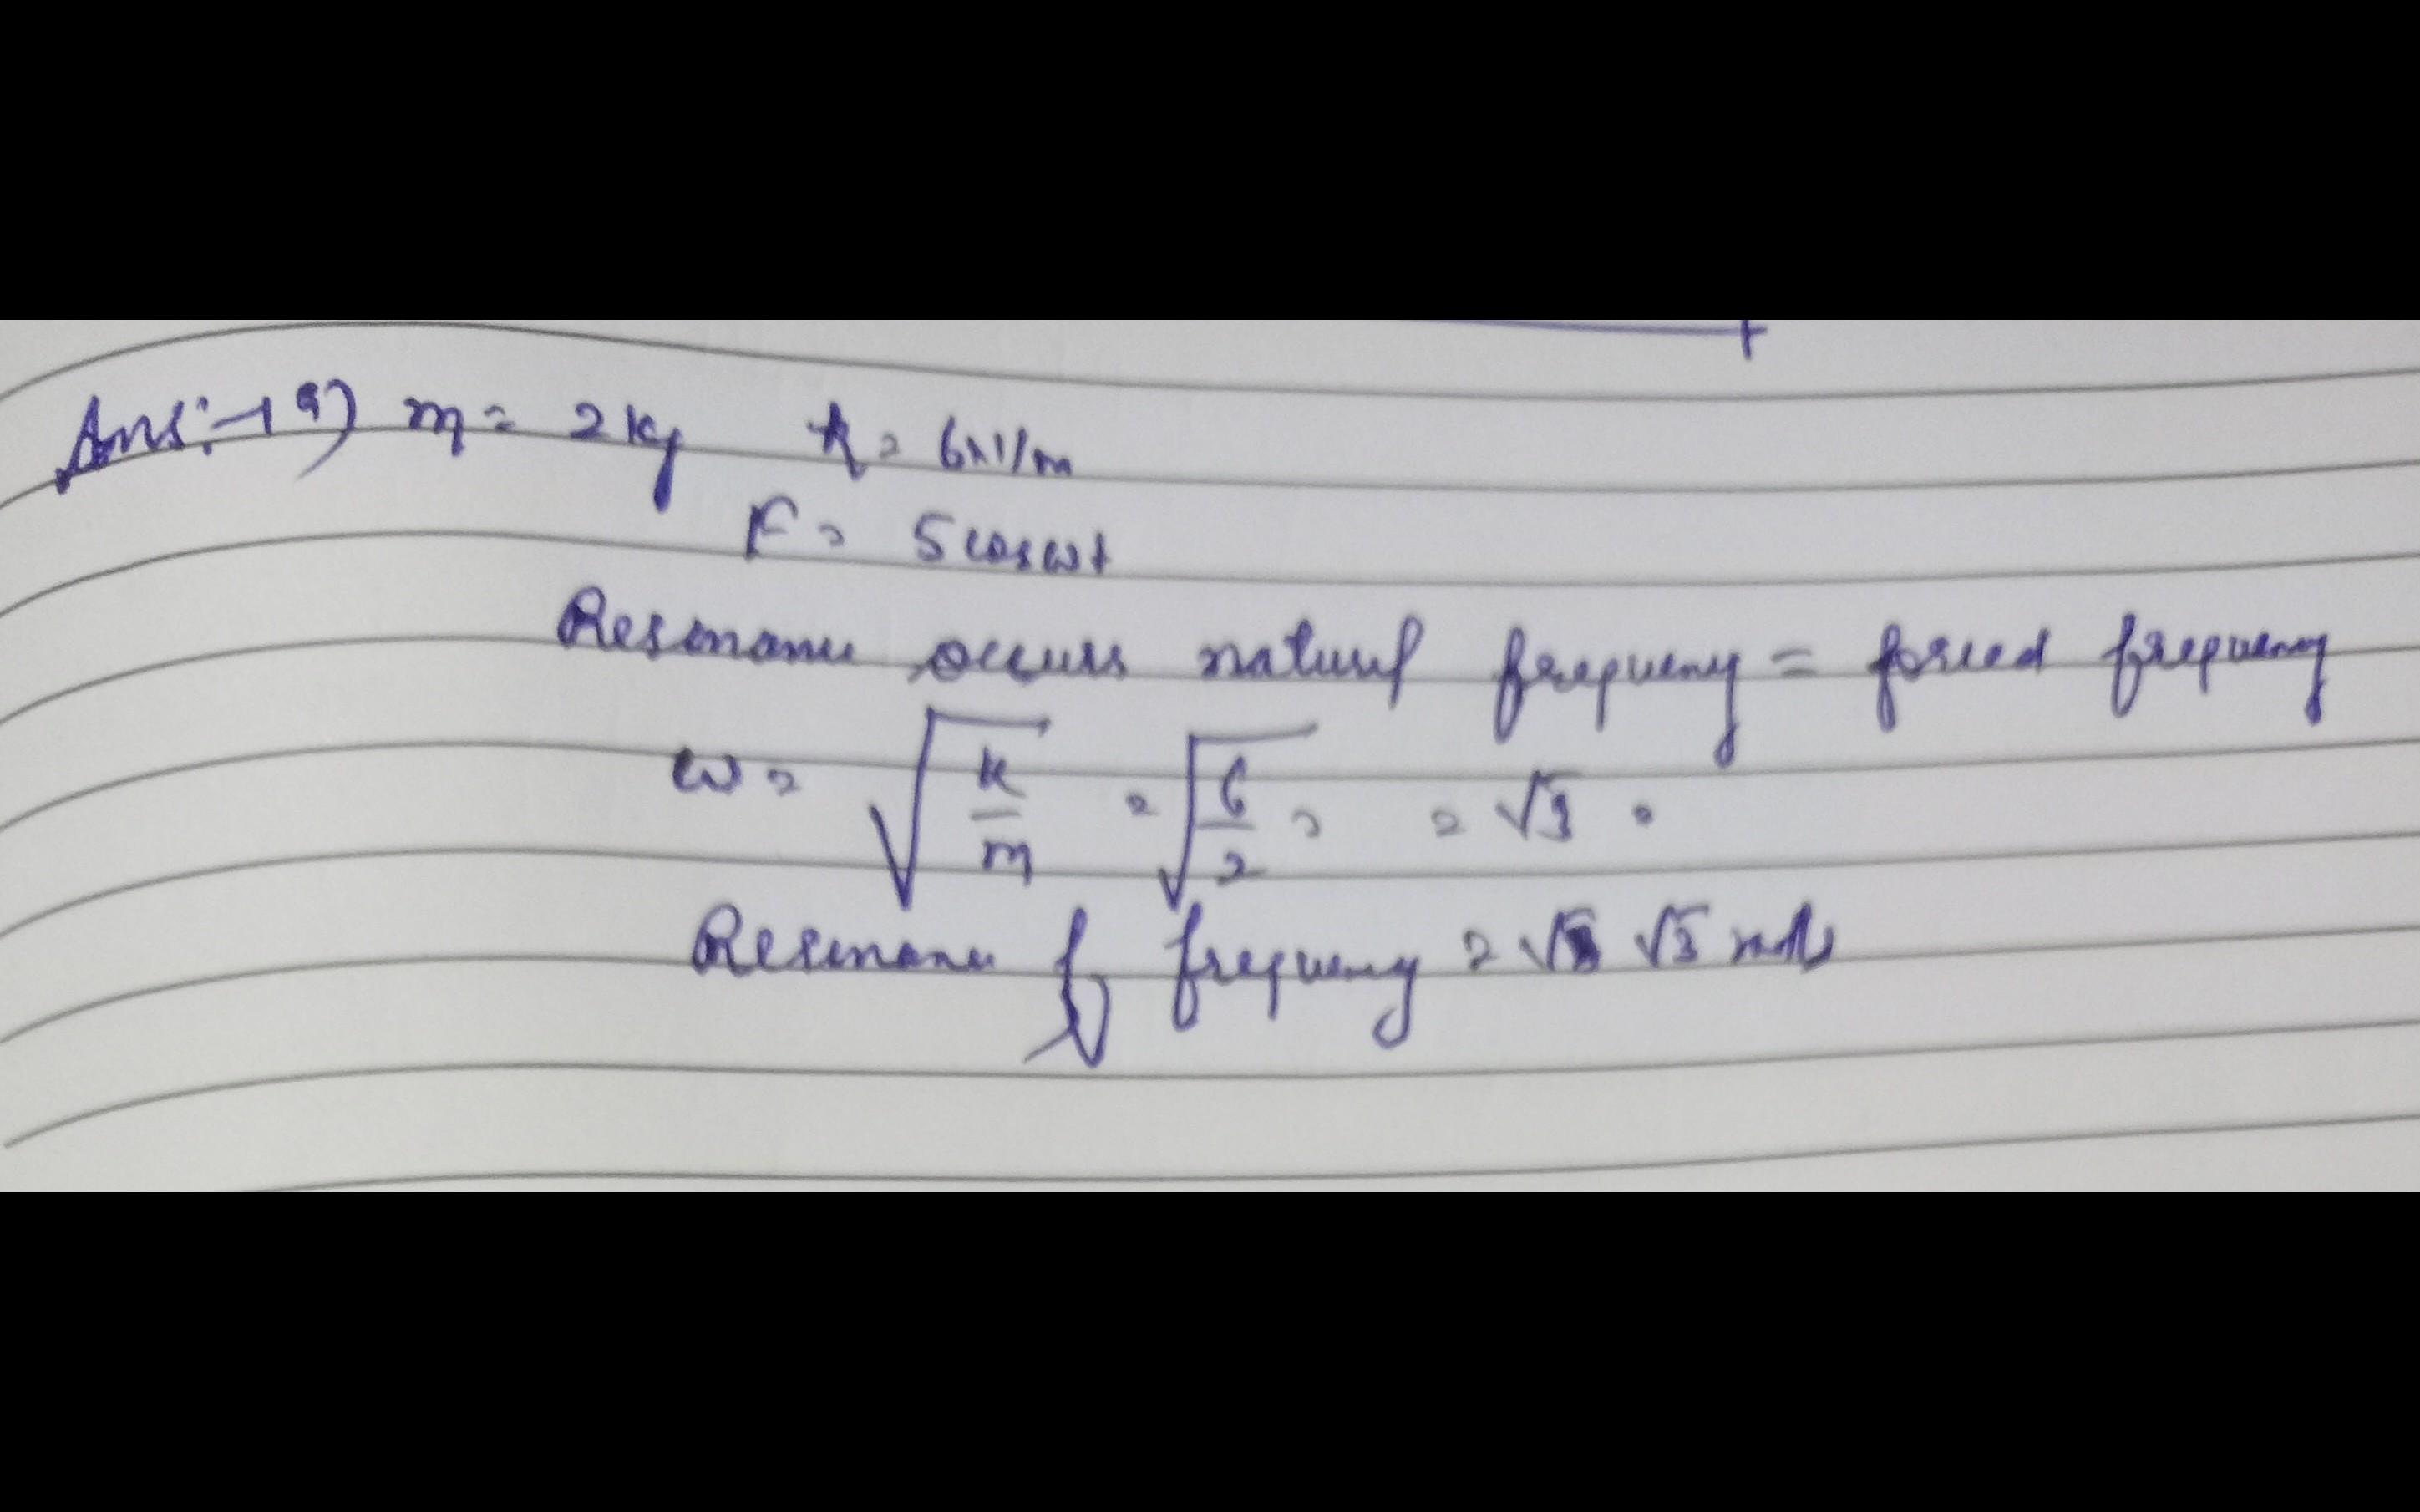 Ans:- 19) m = 2 kg k = 6 N/m
F = 5 cos ωt
Resonance occurs natural frequency = forced frequency
ω = √(k/m) = √(6/2) = = √3 =
Resonance frequency = √3 rad/s